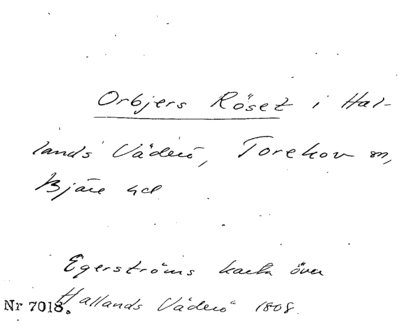 Orbjers Röset i Hal-
lands Väderö, Torekov m,
Bjäre hd
Egerströms karta över
Hallands Väderö 1808.
Nr 7018.